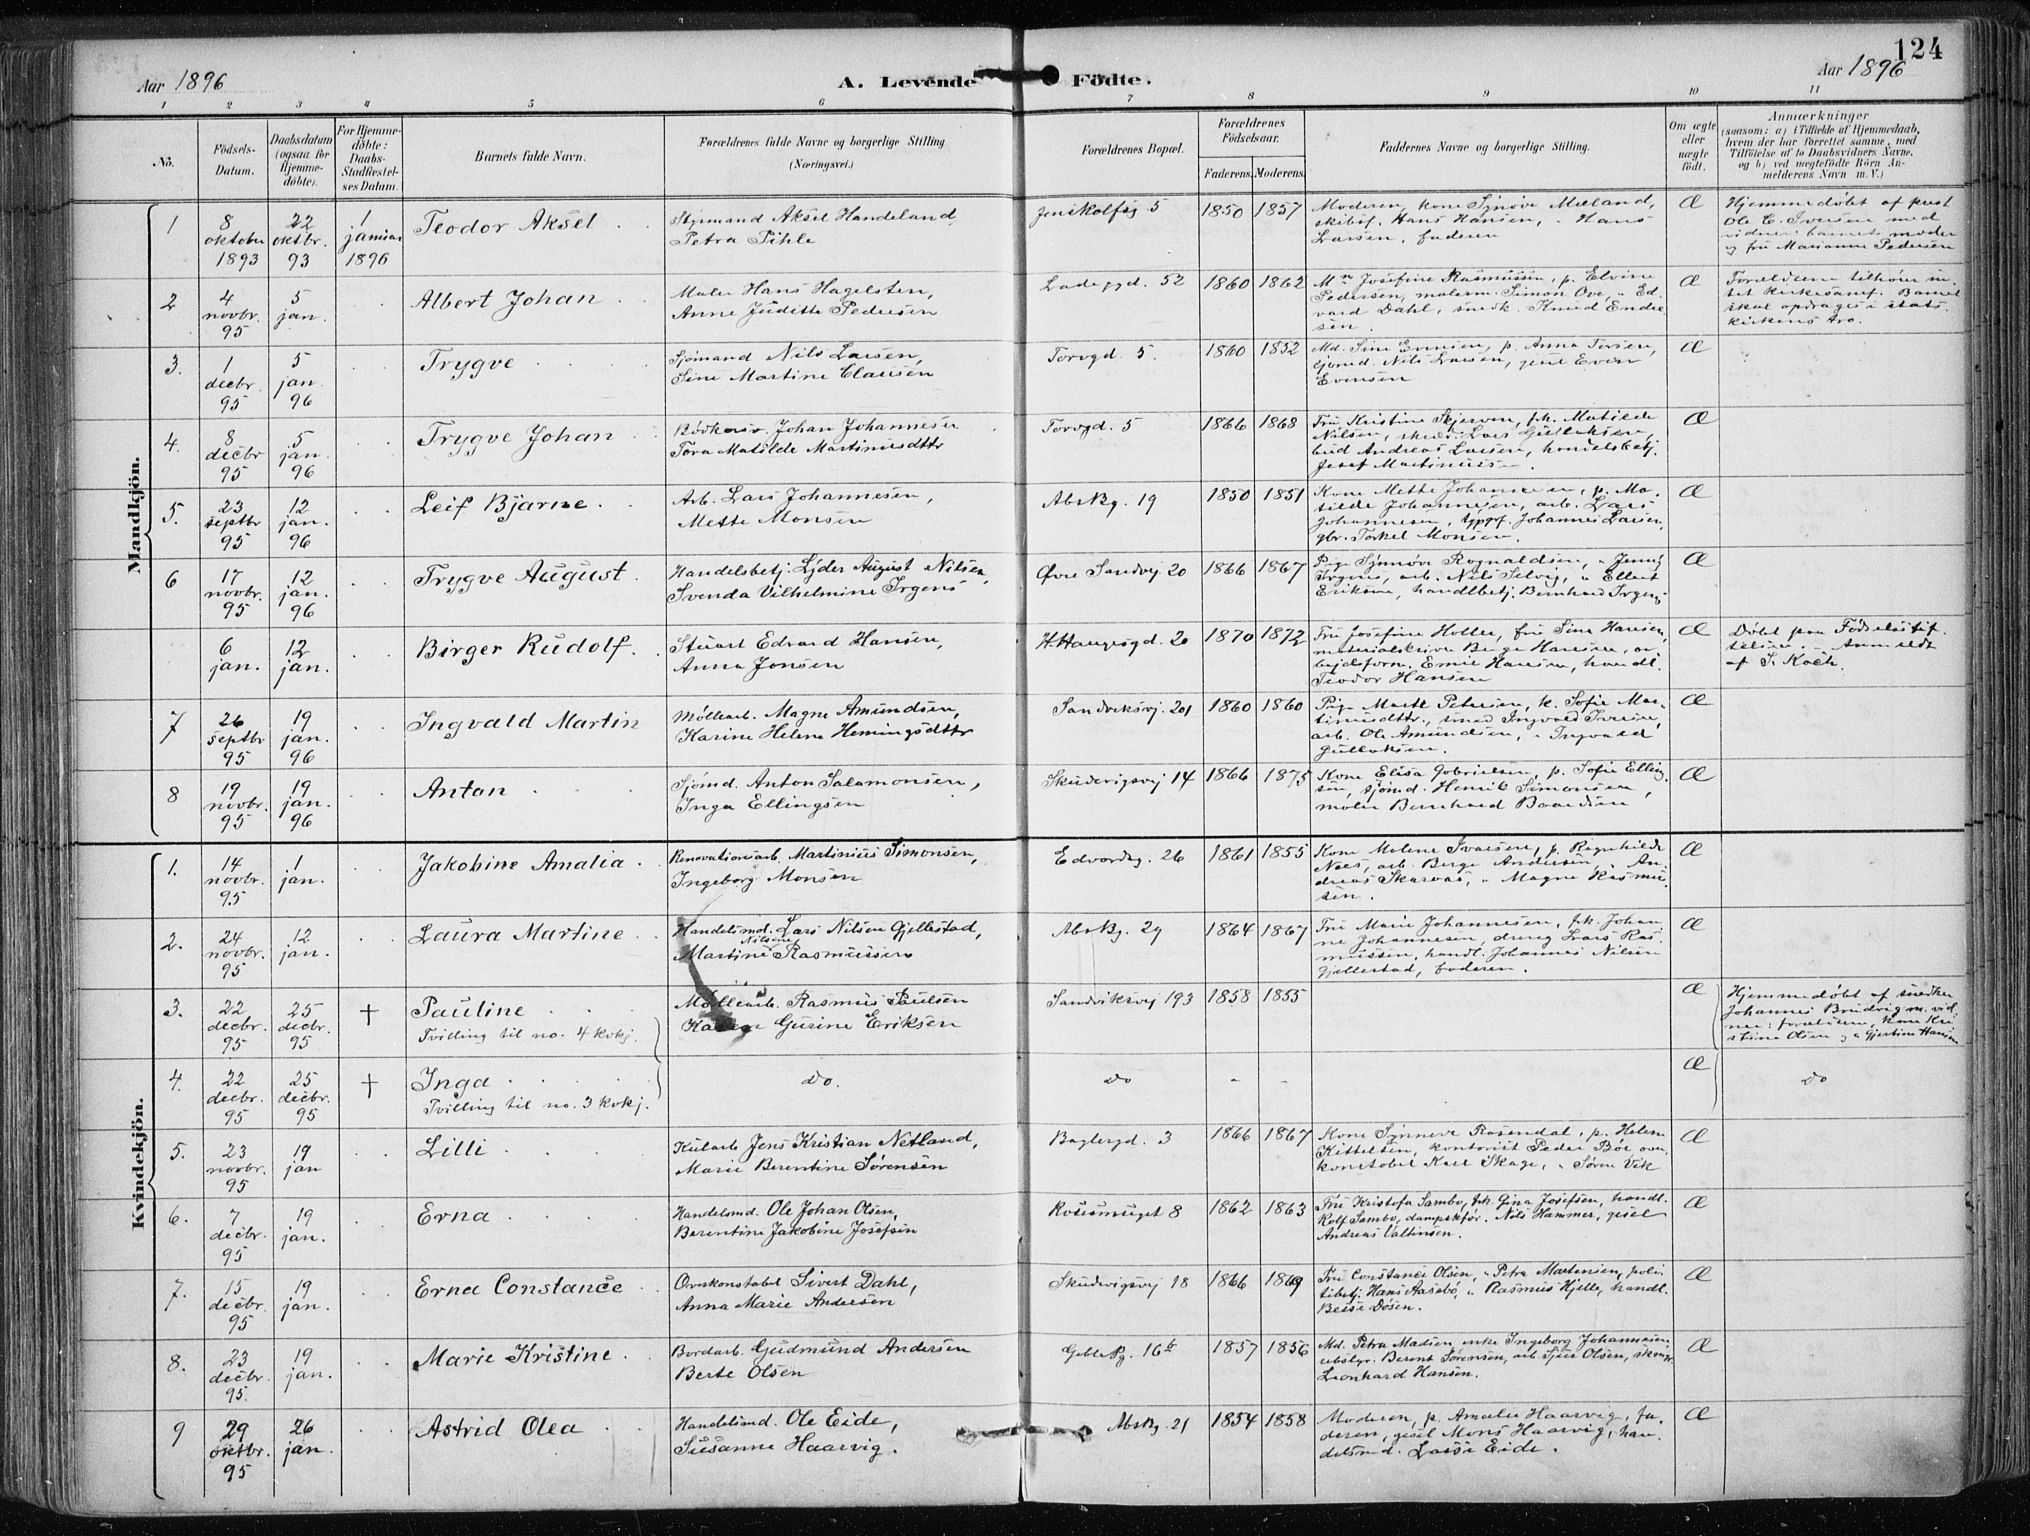 124
Aar 1896
A. Levende Födte.
Aar 1896
1 2 3 4 5 6 7 8 9 10 11
No.
Födsels-
Datum.
Daabsdatum
(ogsaa for
Hjemme-
döbte).
For Hjemme-
döbte:
Daabs-
Stadfæstel-
ses Datum.
Barnets fulde Navn.
Forældrenes fulde Navne og borgerlige Stilling
(Næringsvei.)
Forældrenes Bopæl.
Forældrenes
Födselsaar.
Faderens. Moderens.
Faddernes Navne og borgerlige Stilling.
Om ægte
eller
uægte
födt.
Anmærkninger
(saasom: a) i Tilfælde af Hjemmedaab,
hvem der har forrettet samme, med
Tilföielse af to Daabsvidners Navne,
og b) ved uægtefödte Börn An-
melderens Navn m. V.)
Mandkjön.
1
8
oktober
1893
22
oktbr.
93
1
januar
1896
Teodor Aksel
Styrmand Aksel Handeland
Petra Pihle
Jonskolfsg 5
1850 1857
Moderen, kone Synøve Mæland,
skibsf. Hans Hansen, " Hans
Larsen, faderen
Æ
Hjemmedøbt af prest
Ole C. Iversen med
vidner: barnets moder
og fru Marianne Pedersen
2
4
novbr.
95
5
jan.
Albert Johan
Maler Hans Hagelsten,
Anne Juditte Pedersen
Ladegd. 52
1860 1862
Mn Josefine Rasmussen, p. Elvine
Pedersen, malerm. Simon Ove, " Ed-
vard Dahl, snedk. Knud Endre-
sen
Æ
Forældrene tilhører in-
tet kirkesamf. Barnet
skal opdrages i stats-
kirkens tro.
3.
1
decbr.
95
5
jan
96
Trygve
Sjömand Nils Larsen,
Sine Martine Clausen
Torvgd. 5.
1860 1852
Md. Sine Ennesen, p. Anna Iversen,
sjömd. Nils Larsen, gsel Even
Evensen
Æ
4.
8
decbr
95
5
jan.
96
Trygve Johan
Bødkersv. Johan Johannesen
Tora Matilde Martinusdttr
Torvgd. 5
1866 1868
Fru Kristine Skjerven, frk. Matilde
Nilsen, skræd. Lars Gulliksen,
bud Andreas Larsen, handelsbetj.
Josef Martinussen.
Æ
5.
23
septbr
95
12
jan.
96
Leif Bjarne
Arb. Lars Johannesen,
Mette Monsen
Absbg. 19
1850 1851
Kone Mette Johannesen, p. Ma-
tilde Johannesen, arb. Lars
Johannesen, typgr. Johannes Larsen,
gbr. Torkel Monsen.
Æ
6
17
novbr.
95
12
jan.
96
Trygve August
Handelsbetj. Lyder August Nilsen,
Svenda Vilhelmine Irgens
Øvre Sandvej 20
1866 1867
Pige Synnøve Rognaldsen, " Jenny
Irgens, arb. Nils Selvig, " Ellert
Eriksen, handlbetj. Bernhard Irgens
Æ
6
jan.
12
jan.
Birger Rudolf.
Stuart Edvard Hansen,
Anna Jonsen
H. Haugesgd. 20
1870 1872
Fru Josefine Holler, fru Sina Hansen,
materialskriver Birger Hansen, ar-
bejdsform. Emil Hansen, handl.
Teodor Hansen
Æ
Døbt paa Fødselsstif-
telsen. Anmeldt
af S. Koch.
7
26
septbr
95
19
jan.
96
Ingvald Martin
Møllearb. Magne Amundsen,
Karine Helene Hemingsdttr
Sandviksvj. 201
1860 1860
Pige Marte Petersen, k. Sofie Mar-
tinusdttr., smed Ingvald Iversen,
arb. Ole Amundsen, " Ingvald
Gulliksen.
Æ
8
19
novbr.
95
19
jan.
96
Anton
Sjömd. Anton Salamonsen,
Inga Ellingsen
Skudevigsvej 14
1866 1875
Kone Elisa Gabrielsen, p. Sofie Elling-
sen, sjömd. Henrik Simonsen,
maler Bernhard Baardsen
Æ
Kvindekjön.
1.
14
novbr.
95
1
jan.
Jakobine Amalia
Renovationsarb. Martinius Simonsen,
Ingeborg Monsen
Edvardsg. 26
1861 1855
Kone Malene Ivarsen, p. Ragnhilde
Næs, arb. Berge Andersen, " An-
dreas Skarvas, " Magne Rasmus-
sen.
Æ
2.
24
novbr.
95
12
jan.
Laura Martine
Handelsmd. Lars Nilsen Gjellestad,
Nilsine
Martine Rasmussen
Absbg. 29
1864 1867
Fru Marie Johannesen, frk. Johan-
ne Johannesen, dreng Lars Ras-
mussen, handl. Johannes Nilsen
Gjellestad, faderen.
Æ
3.
22
decbr.
95
25
decbr.
95
+
Pauline
Tvilling til no. 4 kvkj.
Møllearb. Rasmus Paulsen
Karen Gurine Eriksen
Sandviksvej 193
1858 1855
Æ
Hjemmedøbt af snedker
Johannes Brudvig m. vid-
ner: forældrene, kone Kri-
stine Olsen og " Gjertine Hansen
4.
22
decbr.
95
25
decbr.
95
+
Inga
Tvilling til no. 3 kvkj.
do.
do
- -
Æ
do
5.
23
novbr.
95
19
jan
Lilli
Kularb Jens Kristian Netland,
Marie Berentine Sørensen
Baglergd. 3
1866 1867
Kone Synneve Rosendal, p. Helene
Kittelsen, kontorist Peder Bøe over-
konstabel Karl Skage, " Søren Vik
Æ
6.
7
decbr.
95
19
jan.
Erna
Handelsmd. Ole Johan Olsen,
Berentine Jakobine Josefsen
Rosesmuget 8
1862 1863
Fru Kristofa Sambo, frk. Gina Josefsen, handl.
Rolf Sambo, dampskfør. Nils Hammer, gsel
Andreas Valtinsen.
Æ
7.
15
decbr.
95
19
jan.
Erna Constance
Overkonstabel Sivert Dahl,
Anna Marie Andersen
Skudevigsvej 18
1866 1869
Fru Constance Olsen, " Petra Martensen, poli-
tibetj. Hans Aasebø, " Rasmus Hjelle, handl.
Beise Døsen.
Æ
8.
23
decbr.
95.
19
jan.
Marie Kristine
Bordarb. Gudmund Andersen
Berte Olsen
Geblebg. 16b
1857 1856
Md. Petra Madsen, enke Ingeborg Johannesen
Berent Sørensen, arb. Sjur Olsen,
Leonhard Hansen.
Æ
9
29
oktbr.
95
26
jan.
Astrid Olea
Handelsmd. Ole Eide,
Susanne Haarvig.
Absbg. 21
1854 1858
Moderen, p. Amalie Haarvig, fa-
deren, gsel Mons Haarvig, han-
delsmd. Lasse Eide.
Æ